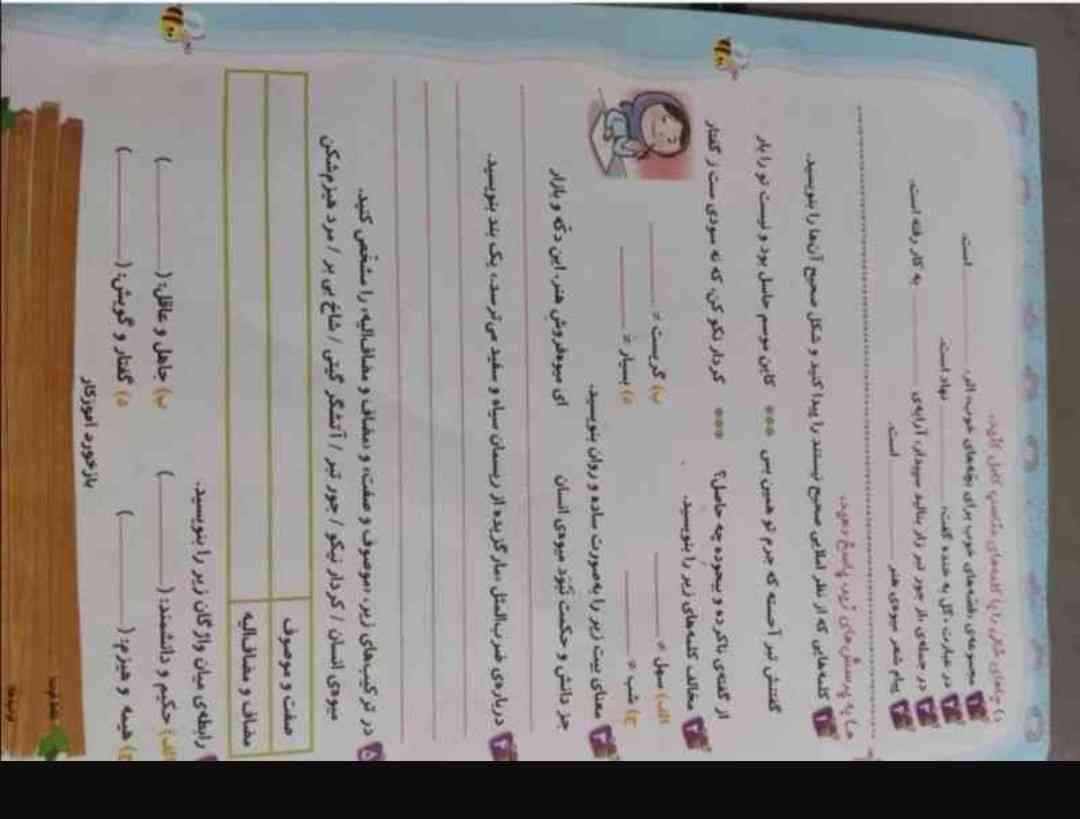 د) جاهای خالی را با کلمه‌های مناسب کامل کنید.
۱ مجموعه‌ی «قصّه‌های خوب برای بچّه‌های خوب» اثر ______ است.
۲ در عبارت «گل به خنده گفت» ______ نهاد است.
۳ در جمله‌ی «از جور تبر زار بنالید سپیدار» آرایه‌ی ______ به کار رفته است.
۴ پیام شعر میوه‌ی هنر ______ است.
هـ) به پرسش‌های زیر، پاسخ دهید.
۱ کلمه‌هایی که از نظر املایی صحیح نیستند را پیدا کنید و شکل صحیح آن‌ها را بنویسید.
گفتش تبر آحسته که جرم تو همین بس *** کاین موسم حاسل بود و نیست تو را بار
از گفته‌ی ناکرده و بیحوده چه حاصل؟ *** کردار نکو کن، که نه سودی ست ز گفتار
۲ مخالف کلمه‌های زیر را بنویسید.
الف) سهل ≠ ______ ب) گریست ≠ ______
ج) شب ≠ ______ د) بسیار ≠ ______
۳ معنای بیت زیر را به‌صورت ساده و روان بنویسید.
جز دانش و حکمت نَبُوَد میوه‌ی انسان ای میوه‌فروش هنر، این دکّه و بازار
۴ درباره‌ی ضرب‌المثل «مارگزیده از ریسمان سیاه و سفید می‌ترسد.» یک بند بنویسید.
۵ در ترکیب‌های زیر، «موصوف و صفت» و «مضاف و مضاف‌الیه» را مشخّص کنید.
میوه‌ی انسان / کردار نیکو / جور تبر / آتشگر گیتی / شاخ بی بر / مرد هیزم‌شکن
صفت و موصوف
مضاف و مضاف‌الیه
رابطه‌ی میان واژگان زیر را بنویسید.
الف) حکیم و دانشمند: ( ______ ) ب) جاهل و عاقل: ( ______ )
ج) هیمه و هیزم: ( ______ ) د) گفتار و گویش: ( ______ )
بازخورد آموزگار